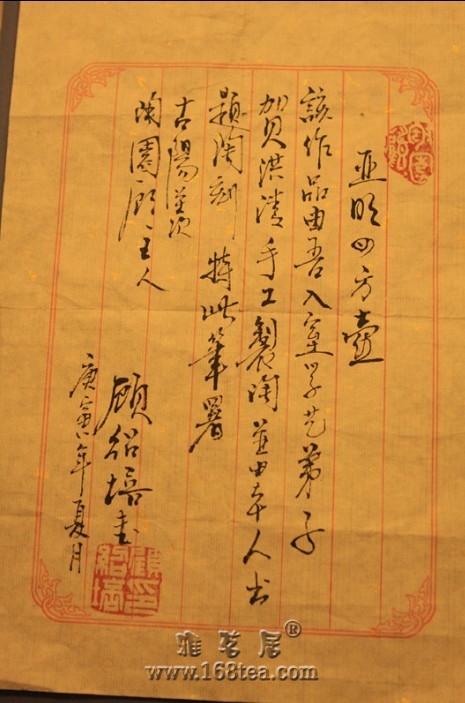 亚明四方壶
該作品由吾入室学艺弟子
贺洪清手工製陶並由本人书
题陶刻 特此筆署
古陽羡次
陶園顾主人
顾绍培书
庚寅年夏月
顾绍培印
雅茗居®
www.168tea.com